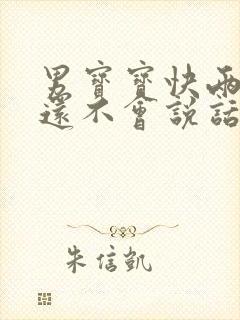 男寶寶快兩
還不會說話
朱信凱